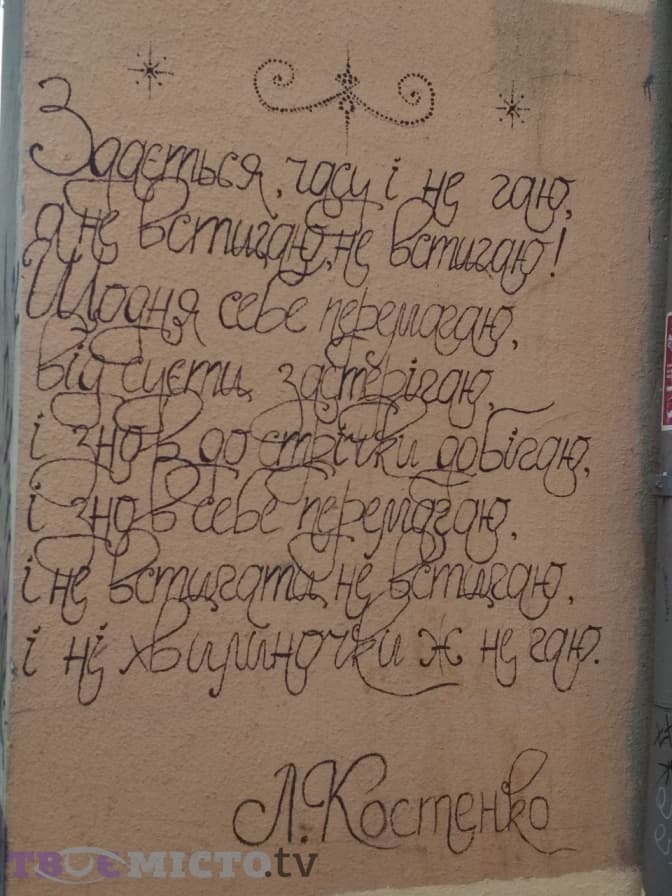 Здається, часу і не гаю,
а не встигаю, не встигаю!
Щодня себе перемагаю,
від суєти застерігаю,
і знов до стрічки добігаю,
і знов себе перемагаю,
і не встигати не встигаю,
і ні хвилиночки ж не гаю.
Л. Костенко
ТВОЄМІСТО.tv